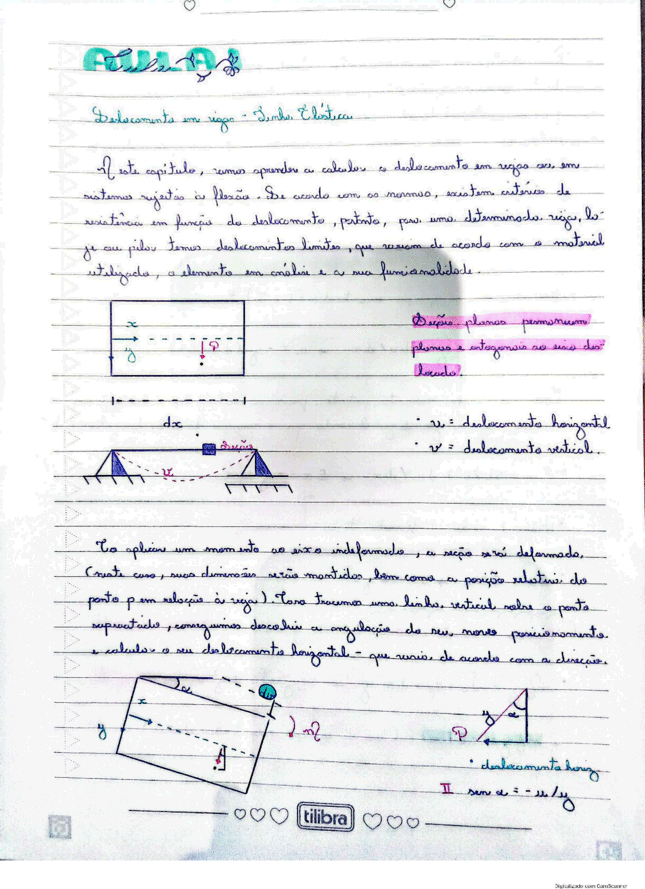 AULA 1
Deslocamento em vigas - Linha Elástica
Neste capítulo, vamos aprender a calcular o deslocamento em vigas ou em
sistemas sujeitos à flexão. De acordo com as normas, existem critérios de
resistência em função do deslocamento, portanto, para uma determinada viga, la-
je ou pilar temos deslocamentos limites, que variam de acordo com o material
utilizado, o elemento em análise e a sua funcionalidade.
x
y
P
Seções planas permanecem
planas e ortogonais ao eixo des-
locado.
dx
· u = deslocamento horizontal
· v = deslocamento vertical.
Seção
v
Ao aplicar um momento ao eixo indeformado, a seção será deformada,
(neste caso, suas dimensões serão mantidas, bem como a posição relativa do
ponto p em relação à viga). Caso tracemos uma linha vertical sobre o ponto
supracitado, conseguimos descobrir a angulação do seu novo posicionamento
e calcular o seu deslocamento horizontal - que varia de acordo com a direção.
α
dv
x
y
M
y
α
P
· deslocamento horiz
II sen α = - u/y
tilibra
Digitalizado com CamScanner